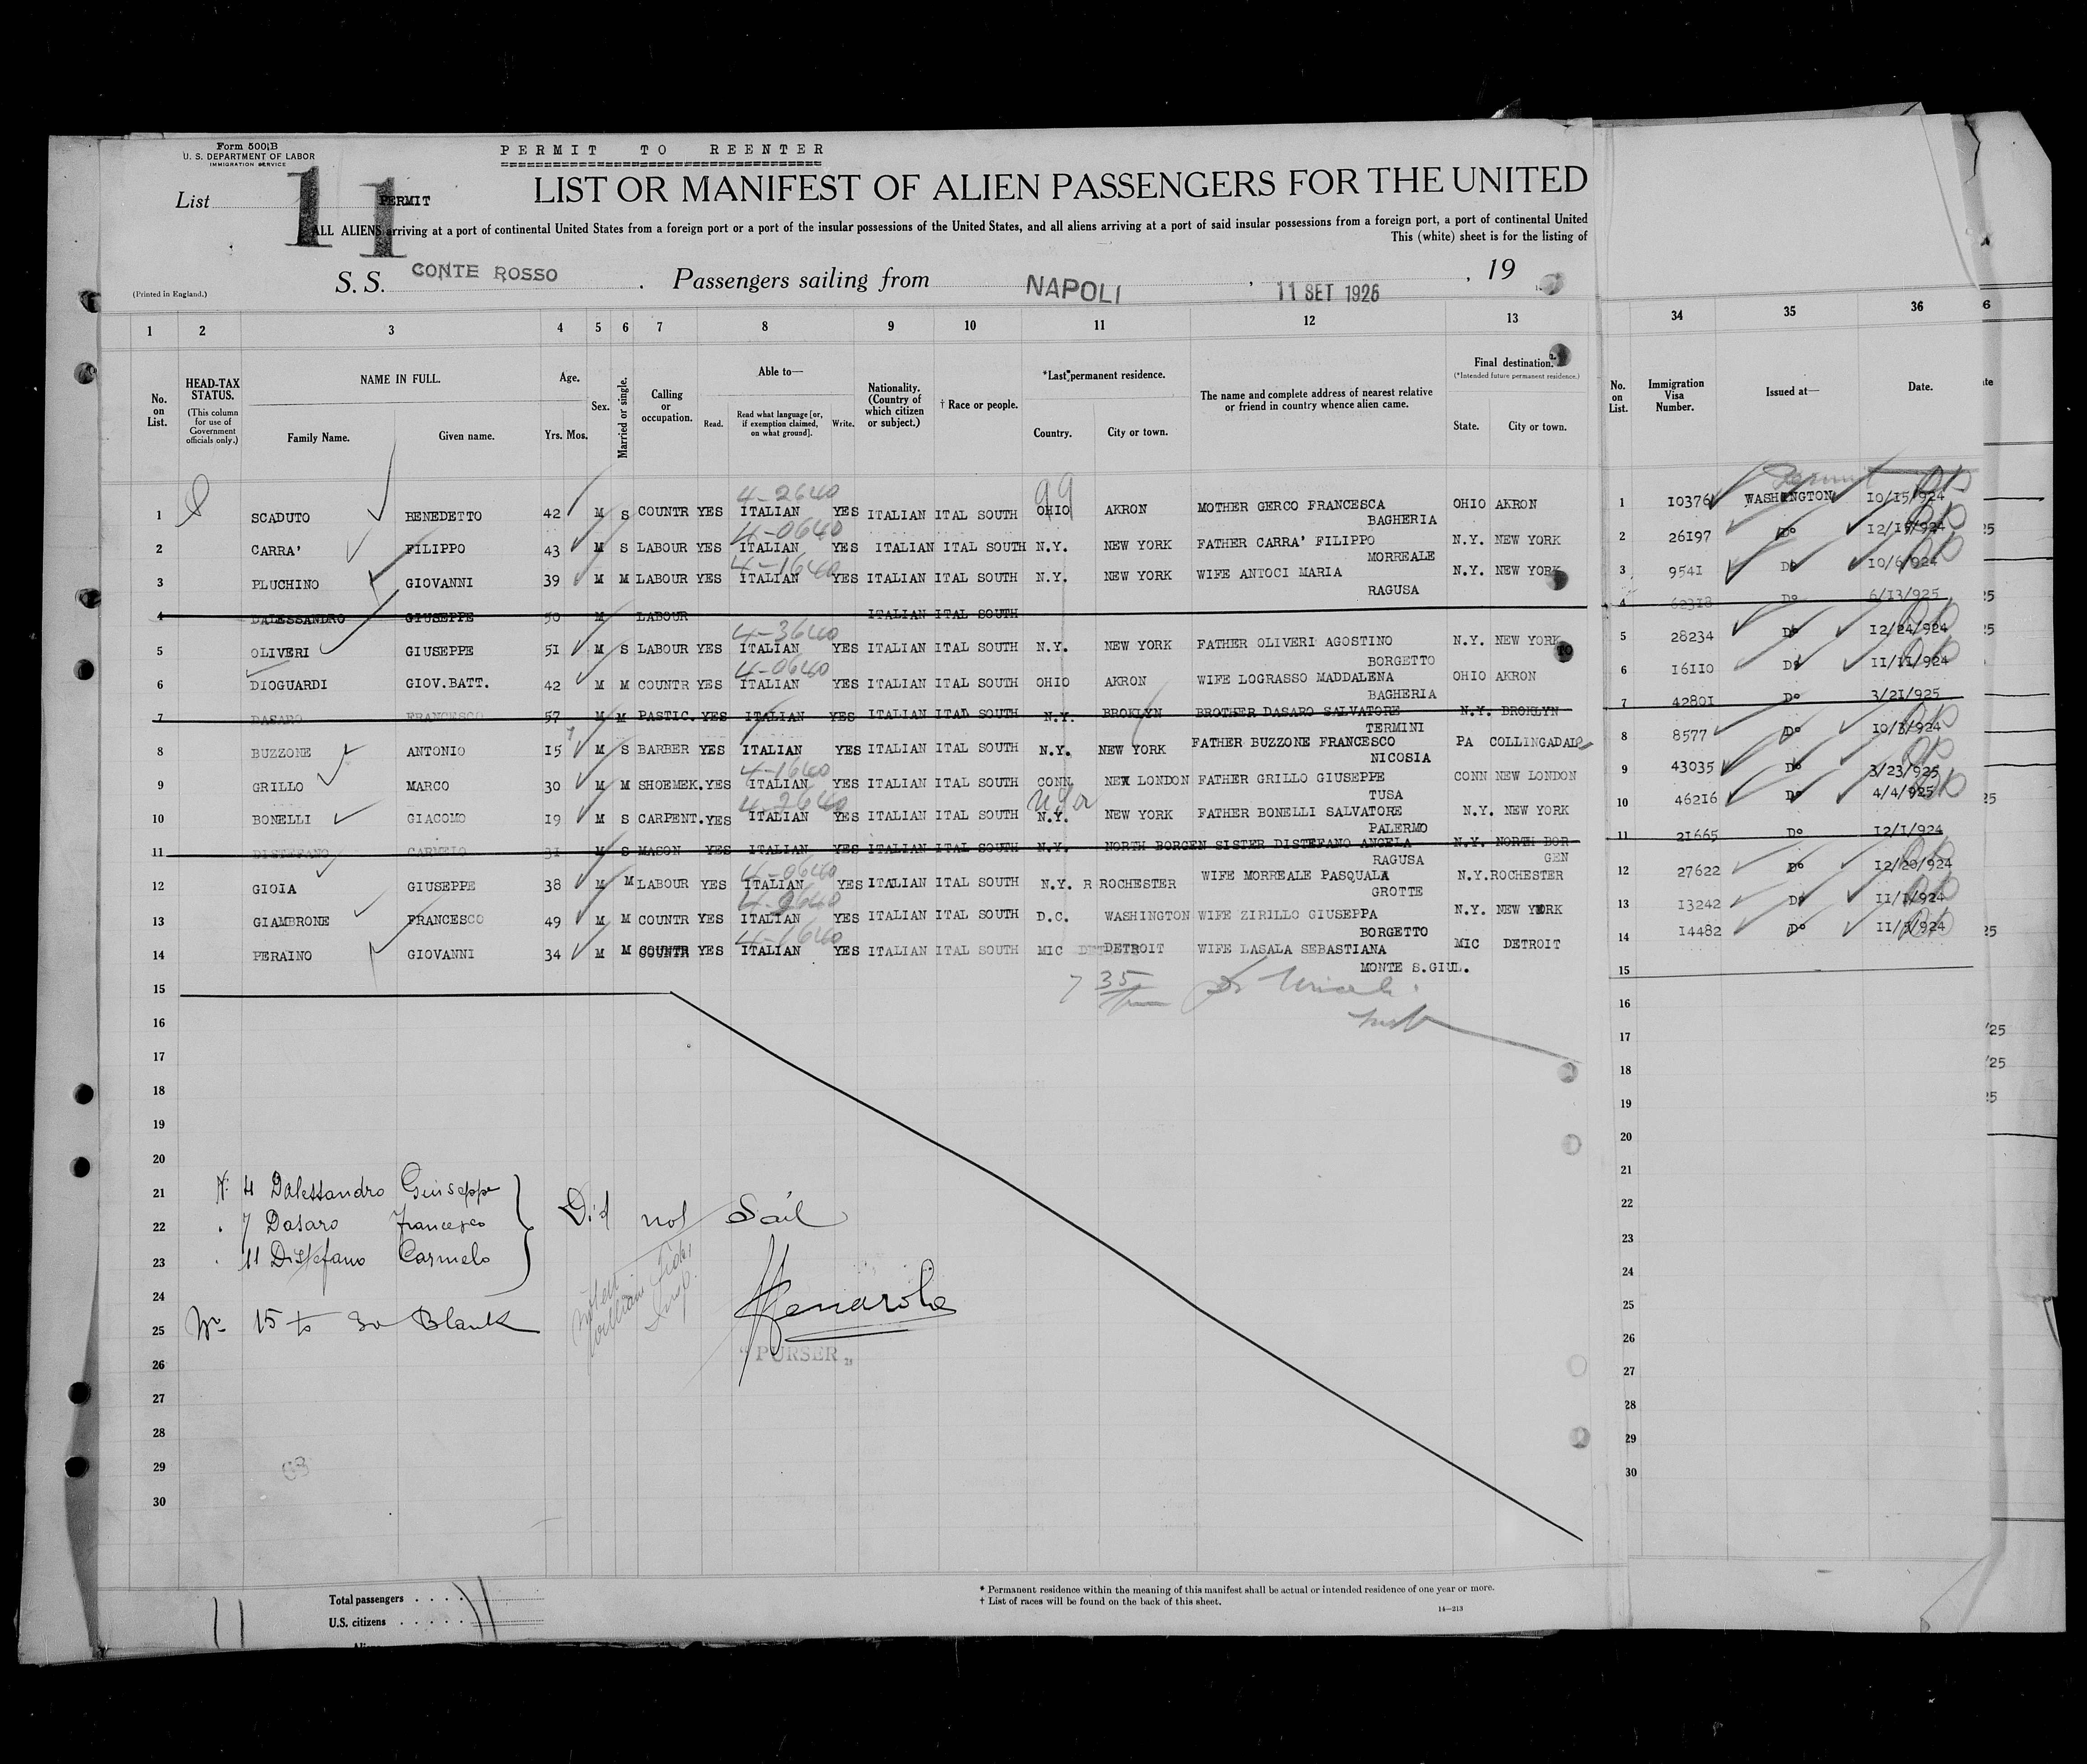 Form 500 B
U. S. DEPARTMENT OF LABOR
IMMIGRATION SERVICE
PERMIT TO REENTER
List 11 PERMIT
LIST OR MANIFEST OF ALIEN PASSENGERS FOR THE UNITED
ALL ALIENS arriving at a port of continental United States from a foreign port or a port of the insular possessions of the United States, and all aliens arriving at a port of said insular possessions from a foreign port, a port of continental United
This (white) sheet is for the listing of
(Printed in England.)
S. S. CONTE ROSSO . Passengers sailing from NAPOLI , 11 SET 1926 , 19
1 2 3 4 5 6 7 8 9 10 11 12 13 34 35 36
No. on List.
HEAD-TAX STATUS.
(This column for use of Government officials only.)
NAME IN FULL.
Family Name. Given name.
Age.
Yrs. Mos.
Sex.
Married or single.
Calling or occupation.
Able to—
Read. Read what language [or, if exemption claimed, on what ground]. Write.
Nationality. (Country of which citizen or subject.)
† Race or people.
*Last permanent residence.
Country. City or town.
The name and complete address of nearest relative or friend in country whence alien came.
Final destination.
(*Intended future permanent residence.)
State. City or town.
No. on List.
Immigration Visa Number.
Issued at—
Date.
Permit
4-2640 99
1 SCADUTO BENEDETTO 42 M S COUNTR YES ITALIAN YES ITALIAN ITAL SOUTH OHIO AKRON MOTHER GERCO FRANCESCA OHIO AKRON 1 10376 WASHINGTON 10/15/924
BAGHERIA
4-0640
2 CARRA' FILIPPO 43 M S LABOUR YES ITALIAN YES ITALIAN ITAL SOUTH N.Y. NEW YORK FATHER CARRA' FILIPPO N.Y. NEW YORK 2 26197 Do 12/15/924
MORREALE
4-1640
3 PLUCHINO GIOVANNI 39 M M LABOUR YES ITALIAN YES ITALIAN ITAL SOUTH N.Y. NEW YORK WIFE ANTOCI MARIA N.Y. NEW YORK 3 9541 Do 10/6/924
RAGUSA
4 DALESSANDRO GIUSEPPE 50 M LABOUR ITALIAN ITAL SOUTH 4 62318 Do 6/13/925
4-3640
5 OLIVERI GIUSEPPE 51 M S LABOUR YES ITALIAN YES ITALIAN ITAL SOUTH N.Y. NEW YORK FATHER OLIVERI AGOSTINO N.Y. NEW YORK 5 28234 Do 12/24/924
BORGETTO
4-0640
6 DIOGUARDI GIOV.BATT. 42 M M COUNTR YES ITALIAN YES ITALIAN ITAL SOUTH OHIO AKRON WIFE LOGRASSO MADDALENA OHIO AKRON 6 16110 Do 11/11/924
BAGHERIA
7 DASARO FRANCESCO 57 M M PASTIC. YES ITALIAN YES ITALIAN ITAD SOUTH N.Y. BROKLYN BROTHER DASARO SALVATORE N.Y. BROKLYN 7 42801 Do 3/21/925
TERMINI
8 BUZZONE ANTONIO 15 M S BARBER YES ITALIAN YES ITALIAN ITAL SOUTH N.Y. NEW YORK FATHER BUZZONE FRANCESCO PA COLLINGADALE 8 8577 Do 10/3/924
NICOSIA
4-1640
9 GRILLO MARCO 30 M M SHOEMEK. YES ITALIAN YES ITALIAN ITAL SOUTH CONN NEW LONDON FATHER GRILLO GIUSEPPE CONN NEW LONDON 9 43035 Do 3/23/925
TUSA
4-2640
10 BONELLI GIACOMO 19 M S CARPENT. YES ITALIAN YES ITALIAN ITAL SOUTH N.Y. NEW YORK FATHER BONELLI SALVATORE N.Y. NEW YORK 10 46216 Do 4/4/925
PALERMO
11 DISTEFANO CARMELO 31 M S MASON YES ITALIAN YES ITALIAN ITAL SOUTH N.Y. NORTH BORGEN SISTER DISTEFANO ANGELA N.Y. NORTH BOR 11 21665 Do 12/1/924
RAGUSA GEN
4-0640
12 GIOIA GIUSEPPE 38 M M LABOUR YES ITALIAN YES ITALIAN ITAL SOUTH N.Y. R ROCHESTER WIFE MORREALE PASQUALA N.Y. ROCHESTER 12 27622 Do 12/20/924
GROTTE
13 GIAMBRONE FRANCESCO 49 M M COUNTR YES ITALIAN YES ITALIAN ITAL SOUTH D.C. WASHINGTON WIFE ZIRILLO GIUSEPPA N.Y. NEW YORK 13 13242 Do 11/1/924
BORGETTO
4-1640
14 PERAINO GIOVANNI 34 M M COUNTR YES ITALIAN YES ITALIAN ITAL SOUTH MIC DETROIT WIFE LASALA SEBASTIANA MIC DETROIT 14 14482 Do 11/5/924
MONTE S.GIUL.
15 15
16 16
17 17
18 18
19 19
20 20
21 N. 4 Dalessandro Giuseppe 21
22 7 Dasaro Francesco Did not Sail 22
23 11 Distefano Carmelo 23
24 24
25 No 15 to 30 Blank 25
26 "PURSER" 26
27 27
28 28
29 29
30 30
11
Total passengers . . . . 11
U.S. citizens . . . . .
* Permanent residence within the meaning of this manifest shall be actual or intended residence of one year or more.
† List of races will be found on the back of this sheet.
14—213